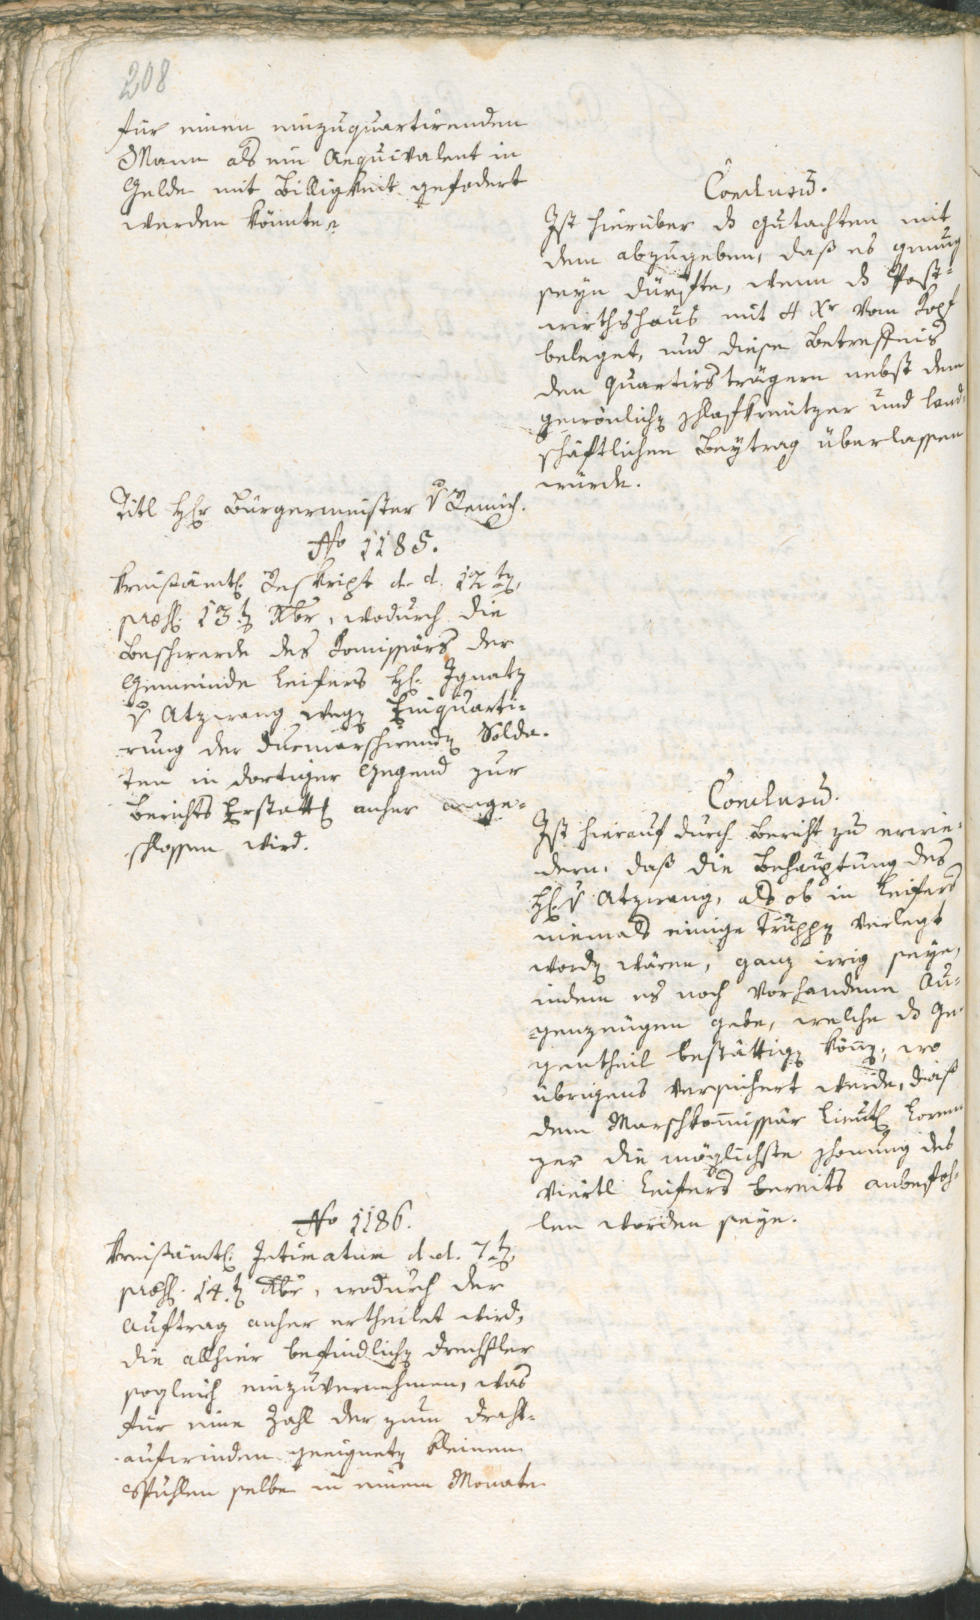 208
für einen einzuquartirenden
Mann als ein Aequivalent in
Gelde mit Billigkeit gefodert
werden könnte.
Conclusũ.
Ist hierüber ds Gutachten mit
dem abzugeben, daß es genug
seyn dürfte, wenn ds Post-
wirthshaus mit 4 Xr vom Kopf
beleget, und diese Betreffnis
den Quartirsträgern nebst dem
gewönlichen Schlafkreutzer und land-
schäftlichen Beytrag überlassen
würde.
Titl Hr Bürgermeister v Remich.
No 1185.
Kreisämtl. Reskript d. d. 12ten,
præs. 13ten Xbr, wodurch die
Beschwerde des Komissärs der
Gemeinde Leifers H. Ignatz
v Atzwang wegen Einquarti-
rung der durmarschirenden Solda-
ten in dortiger Gegend zur
Berichts Erstattl anher ange-
schlossen wird.
Conclusũ.
Ist hierauf durch Bericht zu erwie-
dern, daß die Behauptung des
H. v Atzwang, als ob in Leifers
niemals einige Truppen verlegt
worden wären, ganz irrig seye,
indem es noch vorhandene Au-
genzeugen gebe, welche ds Ge-
gentheil bestättigen könen, wo
übrigens versichert werde, daß
dem Marschkomissär Lieut. Loren-
zer die möglichste Schonung des
Viertl Leifers bereits anbefoh-
len worden seye.
No 1186.
Kreisämtl. Intimatum d. d. 7ten,
præs. 14.ten Xbr, wodurch der
Auftrag anher ertheilet wird,
die allhier befindlichen Drechsler
sogleich einzuvernehmen, was
für eine Zahl der zum Draht-
aufwinden geeigneten kleinen
Spuhlen selbe in einem Monate